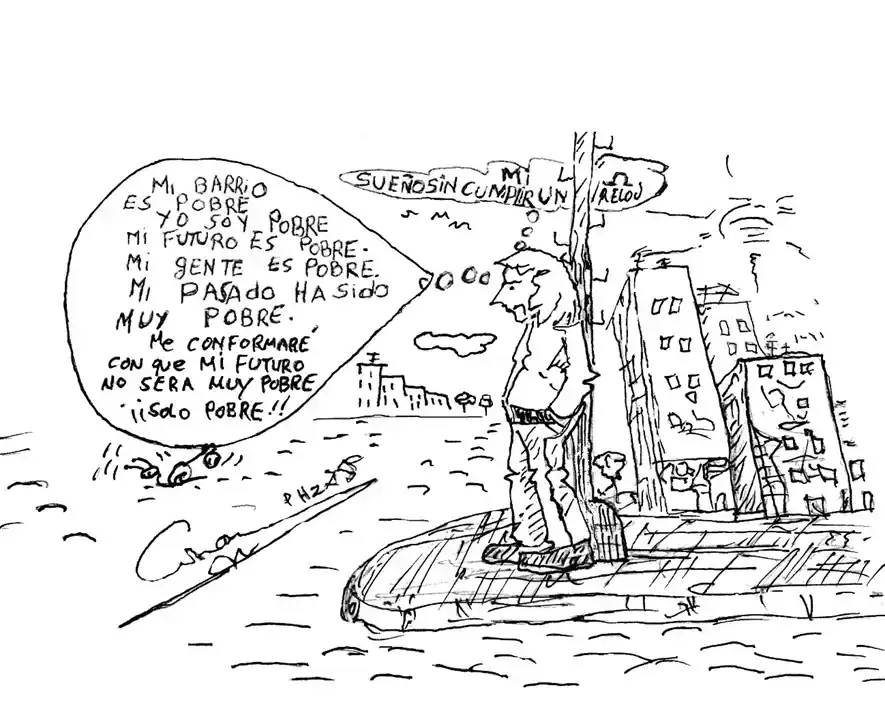 MI BARRIO
ES POBRE
YO SOY POBRE
MI FUTURO ES POBRE.
MI GENTE ES POBRE.
MI PASADO HA SIDO
MUY POBRE.
ME CONFORMARÉ
CON QUE MI FUTURO
NO SERA MUY POBRE
¡¡SOLO POBRE!!
MI
SUEÑO SIN CUMPLIR UN RELOJ